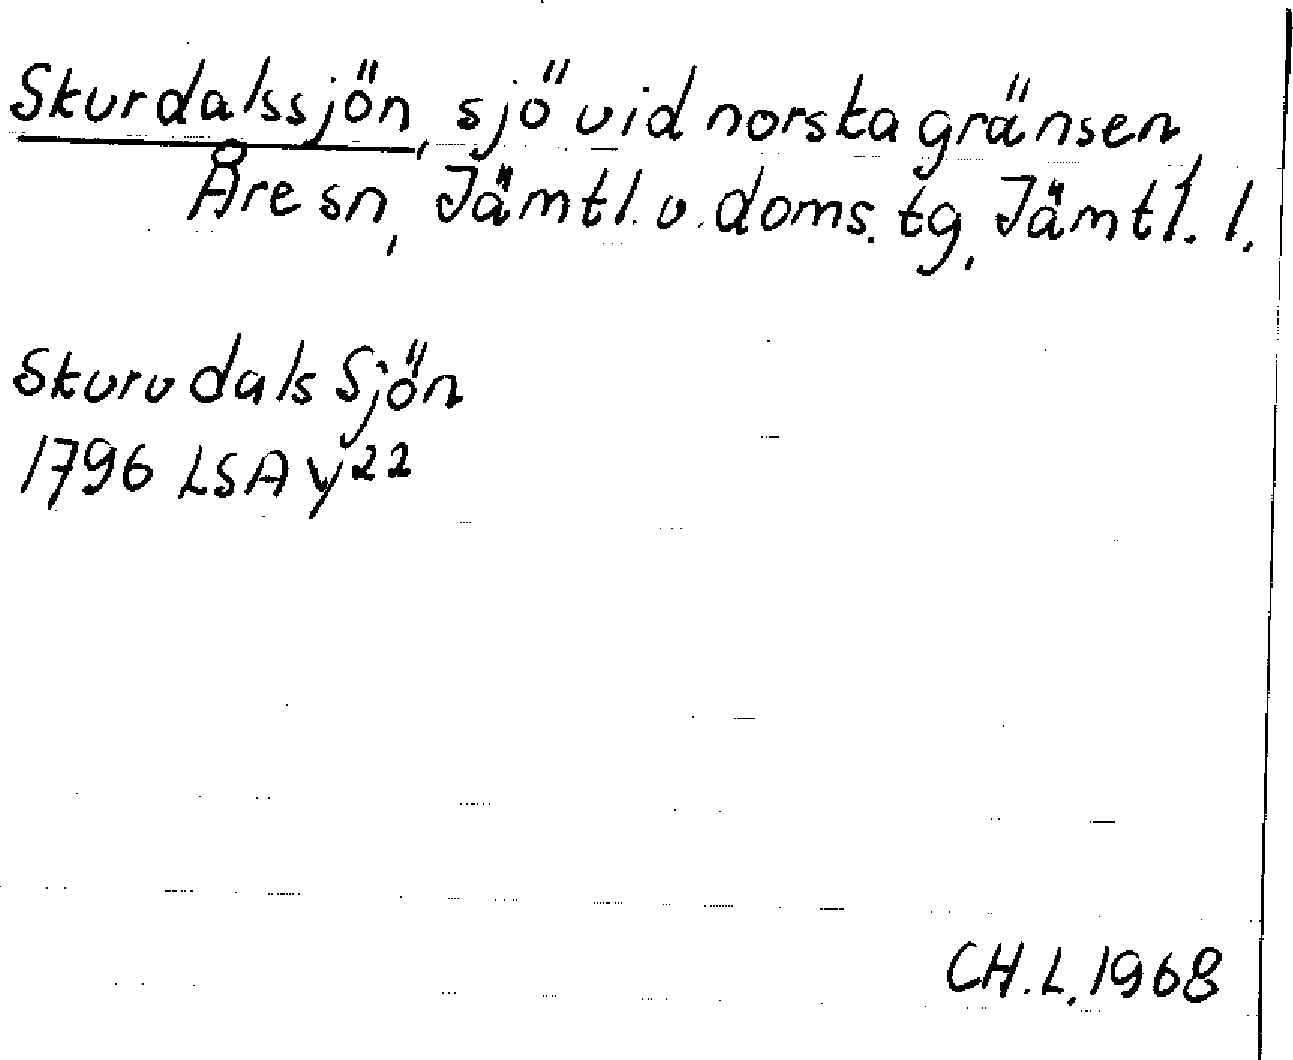 Skurdalssjön, sjö vid norska gränsen,
Åre sn, Jämtl. v. doms. tg, Jämtl. l.
Skuru dals Sjön
1796 LSA y²²
CH.L. 1968